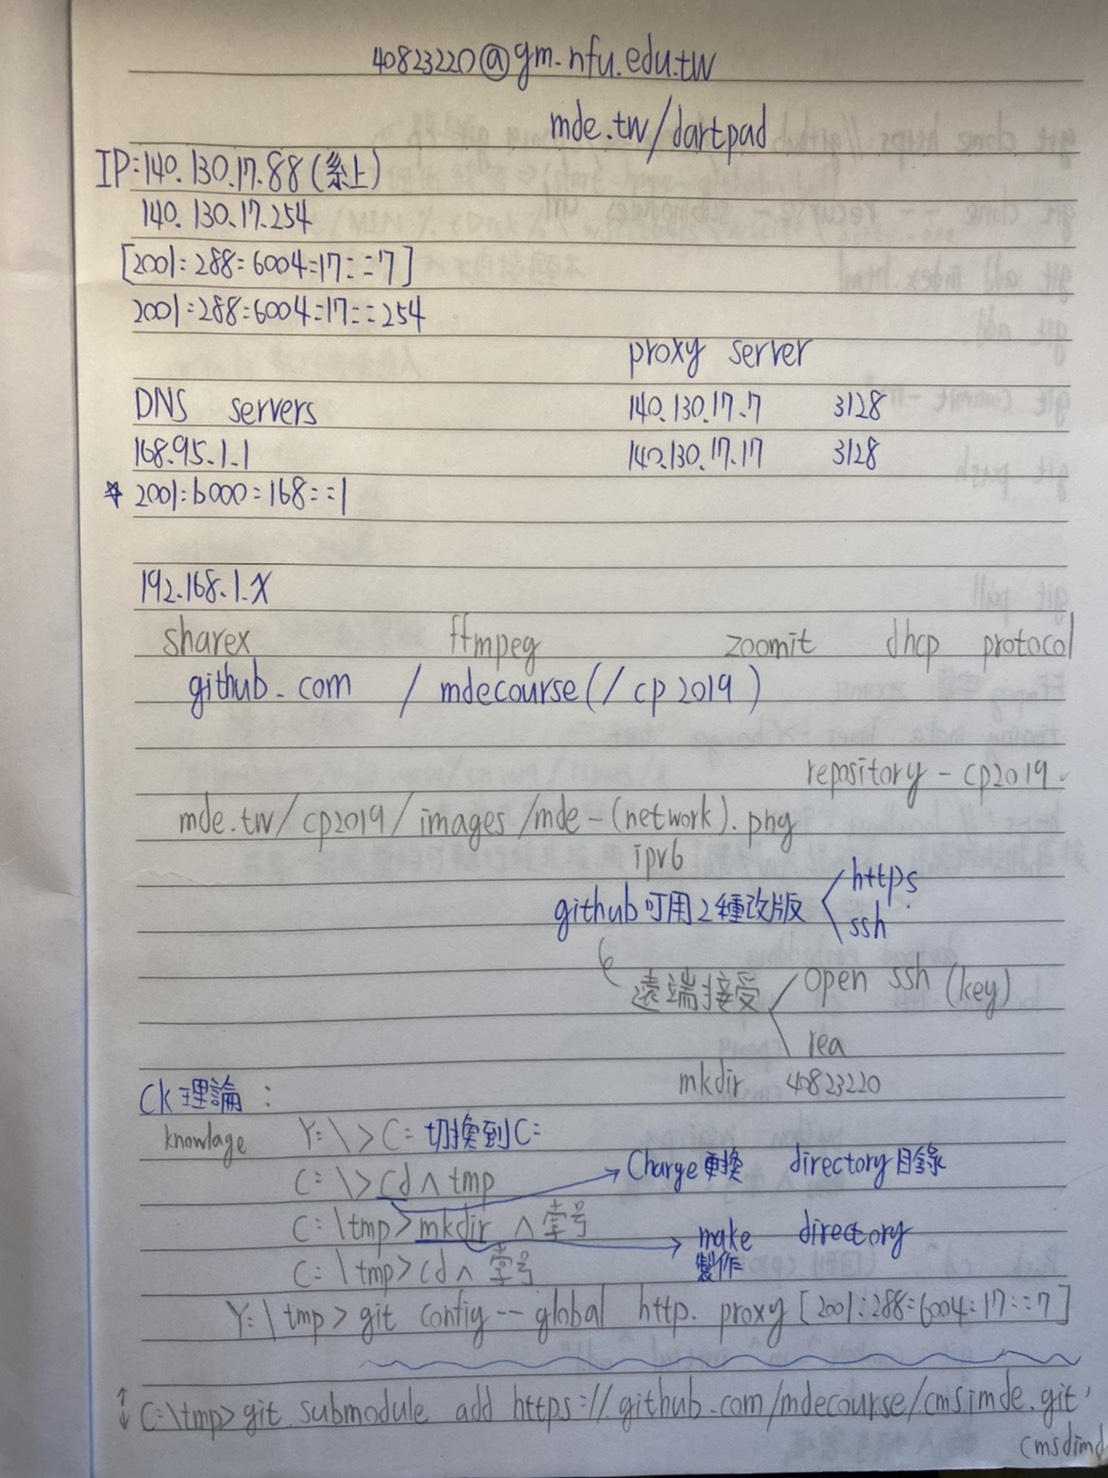 40823220@gm.nfu.edu.tw
mde.tw/dartpad
IP:140.130.17.88(系上)
140.130.17.254
[2001:288:6004:17::7]
2001:288:6004:17::254
proxy server
DNS servers 140.130.17.7 3128
168.95.1.1 140.130.17.17 3128
2001:b000:168::1
192.168.1.X
sharex ffmpeg zoomit dhcp protocol
github.com / mdecourse(/cp2019)
repository-cp2019
mde.tw/cp2019/images/mde-(network).png
ipv6
github可用2種改版 https
ssh
遠端接受 open ssh (key)
rea
mkdir 40823220
Ck理論:
knowlage Y:\>C: 切換到C:
C:\>cd ^ tmp Charge更換 directory目錄
C:\tmp>mkdir ^ 學号 make directory
製作
C:\tmp>cd ^ 學号
Y:\tmp>git config--global http.proxy[2001:288:6004:17::7]
C:\tmp>git submodule add https://github.com/mdecourse/cmsimde.git
cmsdimd